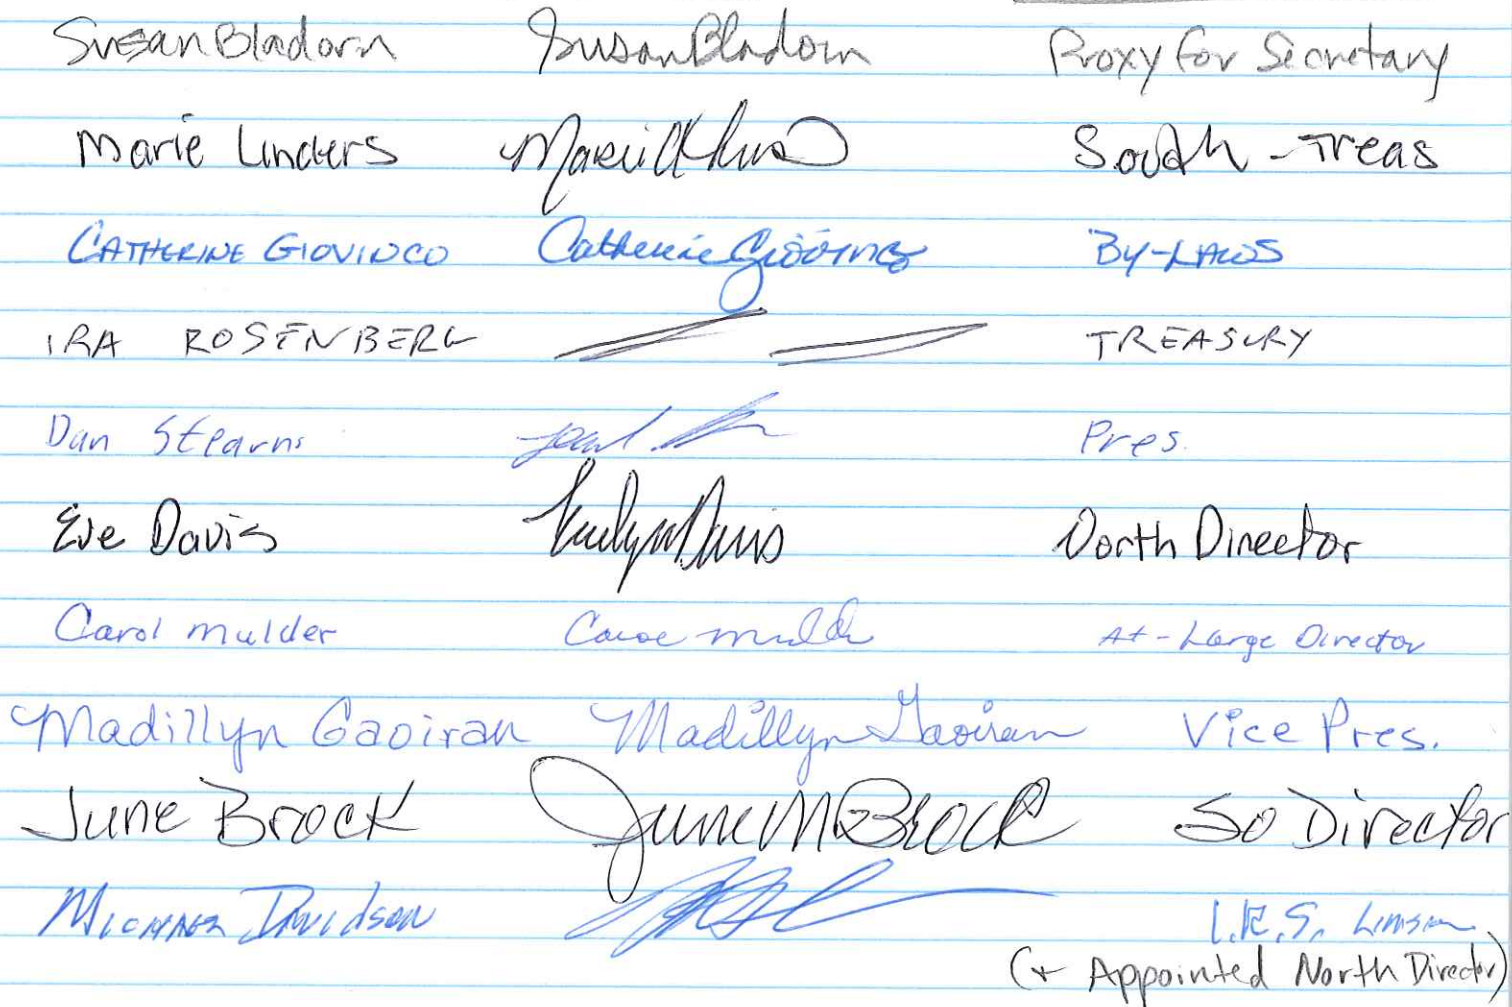 Susan Bladorn Susan Bladorn Proxy for Secretary
Marie Linders South - Treas
CATHERINE GIOVINCO Catherine Giovinco BY-LAWS
IRA ROSENBERG TREASURY
Dan Stearns Pres.
Eve Davis Evelyn Davis North Director
Carol Mulder Carol Mulder At-Large Director
Madillyn Gaoiran Madillyn Gaoiran Vice Pres.
June Brock June M Brock So Director
Michael Davidson I.R.S.
(+ Appointed North Director)